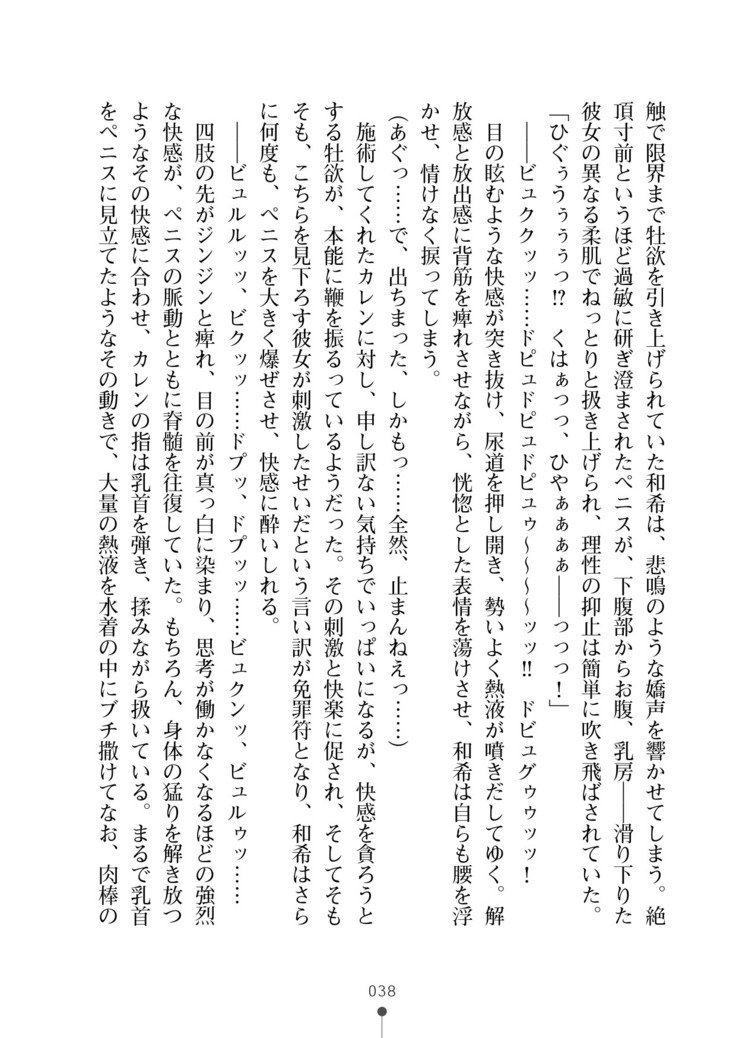 触で限界まで牡欲を引き上げられていた和希は、悲鳴のような嬌声を響かせてしまう。絶
頂寸前というほど過敏に研ぎ澄まされたペニスが、下腹部からお腹、乳房――滑り下りた
彼女の異なる柔肌でねっとりと扱き上げられ、理性の抑止は簡単に吹き飛ばされていた。
「ひぐぅうぅぅぅっ!?　くはぁっっ、ひやぁぁぁぁ――っっっ！」
――ビュククッッ……ドピュドピュドピュゥ～～～～ッッ!!　ドビュグゥゥッッ！
目の眩むような快感が突き抜け、尿道を押し開き、勢いよく熱液が噴きだしてゆく。解
放感と放出感に背筋を痺れさせながら、恍惚とした表情を蕩けさせ、和希は自らも腰を浮
かせ、情けなく捩ってしまう。
(あぐっ……で、出ちまった、しかもっ……全然、止まんねえっ……)
施術してくれたカレンに対し、申し訳ない気持ちでいっぱいになるが、快感を貪ろうと
する牡欲が、本能に鞭を振るっているようだった。その刺激と快楽に促され、そしてそも
そも、こちらを見下ろす彼女が刺激したせいだという言い訳が免罪符となり、和希はさら
に何度も、ペニスを大きく爆ぜさせ、快感に酔いしれる。
――ビュルルッッ、ビクッッ……ドプッ、ドプッッ……ビュクンッ、ビュルゥッ……
四肢の先がジンジンと痺れ、目の前が真っ白に染まり、思考が働かなくなるほどの強烈
な快感が、ペニスの脈動とともに脊髄を往復していた。もちろん、身体の猛りを解き放つ
ようなその快感に合わせ、カレンの指は乳首を弾き、揉みながら扱いている。まるで乳首
をペニスに見立てたようなその動きで、大量の熱液を水着の中にブチ撒けてなお、肉棒の
038